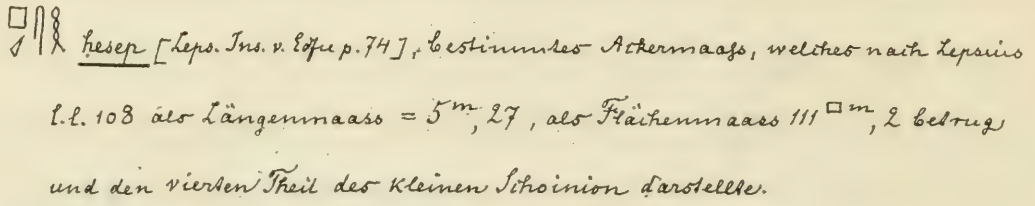 hesep [Leps. Ins. v. Edfu p. 74], bestimmtes Ackermaass, welches nach Lepsius
l.l. 108 als Längenmaass = 5ᵐ,27, als Flächenmaass 111□ᵐ,2 betrug
und den vierten Theil des kleinen Schoinion darstellte.